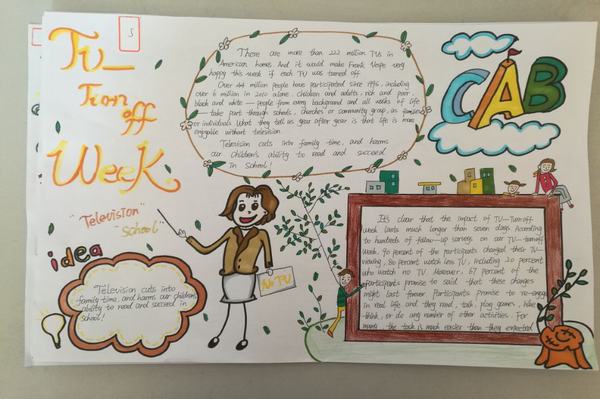 TV-
Turn
off
Week
"Television"
"School"
idea
"Television cuts into
family time, and harms our children's
ability to read and succeed in
school!
5
There are more than 222 million TVs in
American homes. And it would make Frank Vespe very
happy this week if each TV was turned off.
Over 24 million people have participated since 1995, including
over 6 million in 2010 alone. Children and adults, rich and poor,
black and white — people from every background and all walks of life
— take part through schools, churches or community group, as families
or individuals. What they tell us year after year is that life is more
enjoyable without television.
Television cuts into family time, and harms
our children's ability to read and succeed
in school!
No TV
CAB
It's clear that the impact of TV-Turnoff
week lasts much longer than seven days. According
to hundreds of follow-up surveys on our TV-turnoff
Week, 90 percent of the participants changed their TV-
viewing, 80 percent watch less TV, including 20 percent
who watch no TV. However, 67 percent of the
participants promise to said that these changes
might last forever. Participants promise to re-engage
in real life and they read, talk, play games, hike,
think, or do any number of other activities. For
many, the task is much easier than they expected